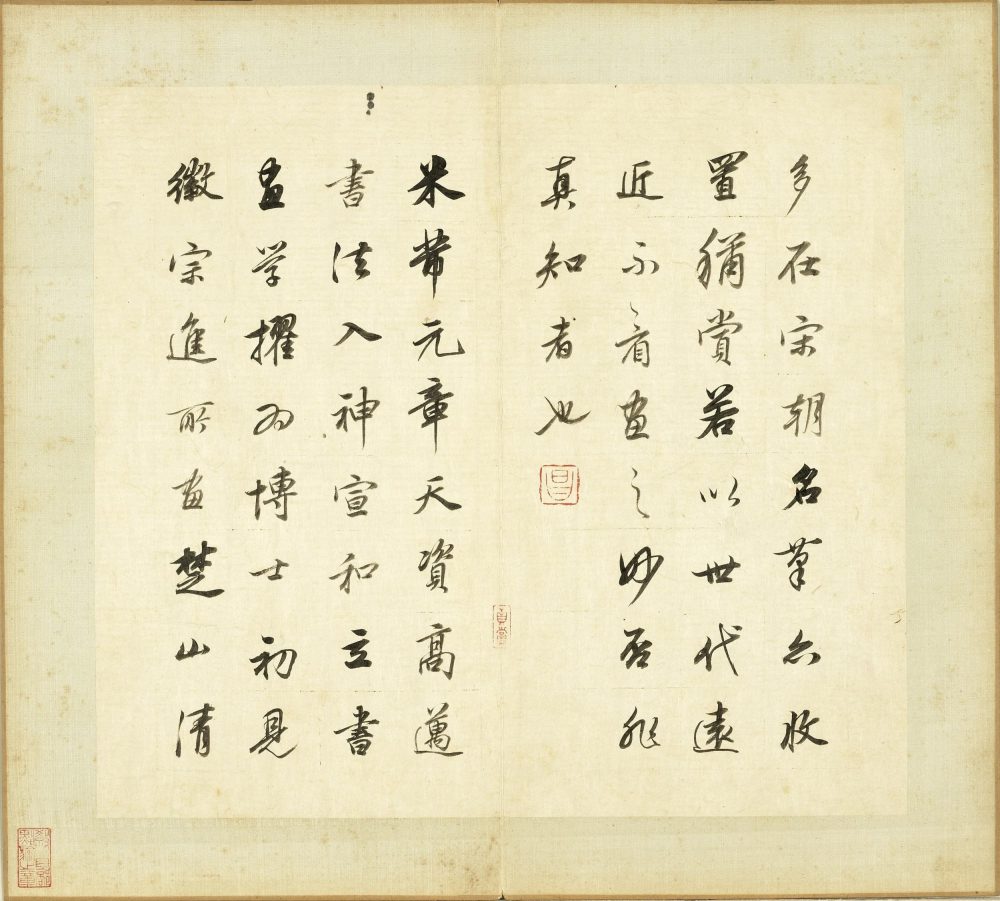 多在宋朝名筆亦收
置獮賞若以世代遠
近不看畫之妙否非
真知者也
米芾元章天資高邁
書法入神宣和立書
畫學擢為博士初見
徽宗進所畫楚山清